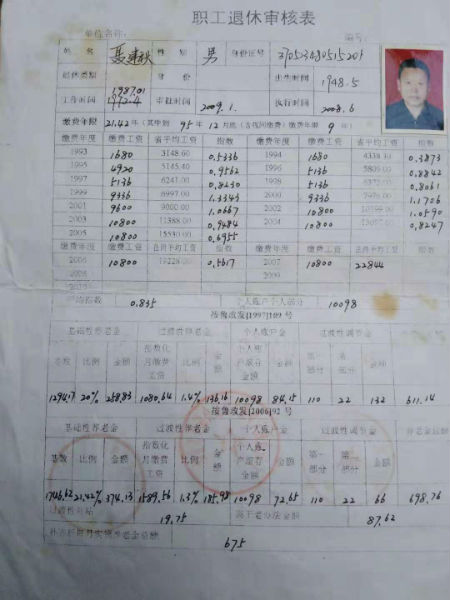 职工退休审核表
单位名称: 编号:
姓名 性别 男 身份证号
退休类别 身份 出生时间 1948.5
1987.01
工作时间 1972.4 审批时间 2009.1. 执行时间 2008.6
缴费年限 21.42年(其中到95年12月底(含视同缴费)缴费年限 9年)
缴费年度 缴费工资 省平均工资 指数 缴费年度 缴费工资 省平均工资 指数
1993 1680 3148.60 0.5336 1994 1680 4338.10 0.3873
1995 4920 5145.40 0.9562 1996 5136 5809.00 0.8842
1997 5136 6241.00 0.8230 1998 5136 0.8061
1999 9336 6997.00 1.3343 2000 9336 7976.00 1.1706
2001 9600 9000.00 1.0667 2002 10800 1.0590
2003 10800 11388.00 0.9484 2004 10800 0.8247
2005 10800 15530.00 0.6955
缴费年度 缴费工资 指数 缴费年度 缴费工资 指数
2006 10800 19228.00 0.5617 2007 10800 22844
2008 2009
平均指数 0.835 个人账户个人部分 10098
按鲁改发[1997]109号
基础性养老金 过渡性养老金 个人账户金 过渡性调节金
基数 比例 金额 指数化月缴费工资 比例 金额 个人账户储存金额 金额 第一部分 第二部分 金额
1294.17 20% 258.83 1080.64 1.4% 136.16 10098 84.15 110 22 132 611.14
按鲁改发[2006]92号
基础性养老金 过渡性养老金 个人账户金 过渡性调节金 养老金总额
基数 比例 金额 指数化月缴费工资 比例 金额 个人账户储存金额 金额 第一部分 第二部分 金额
1746.62 21.42% 374.13 1589.56 1.3% 185.98 10098 72.65 110 22 66 698.76
过渡性补贴 19.75 高于老办法金额 87.62
675